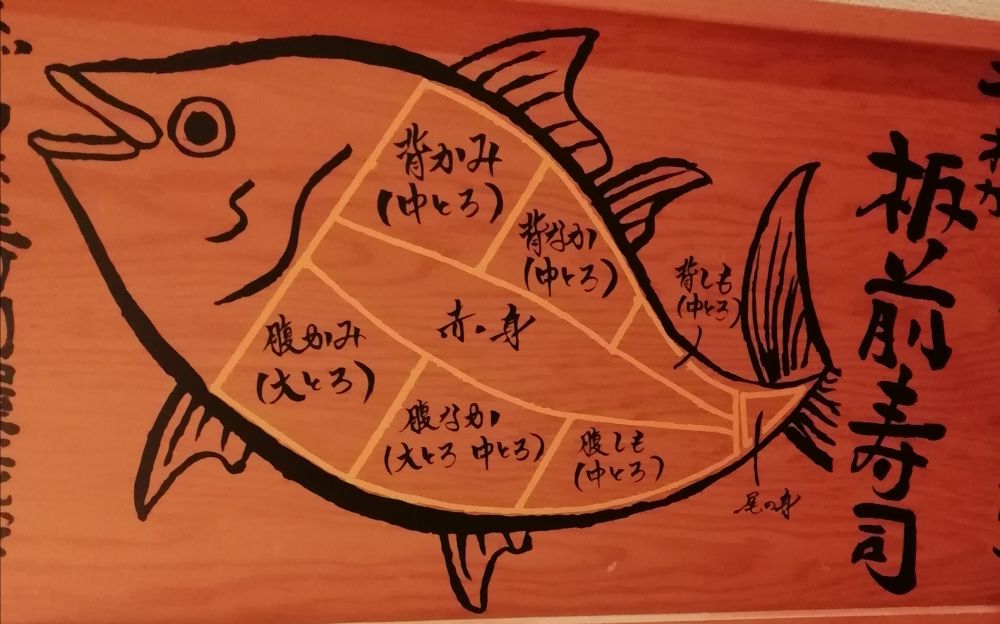 背かみ
(中とろ)
背なか
(中とろ)
背しも
(中とろ)
赤身
腹かみ
(大とろ)
腹なか
(大とろ 中とろ)
腹しも
(中とろ)
尾の身
板前寿司